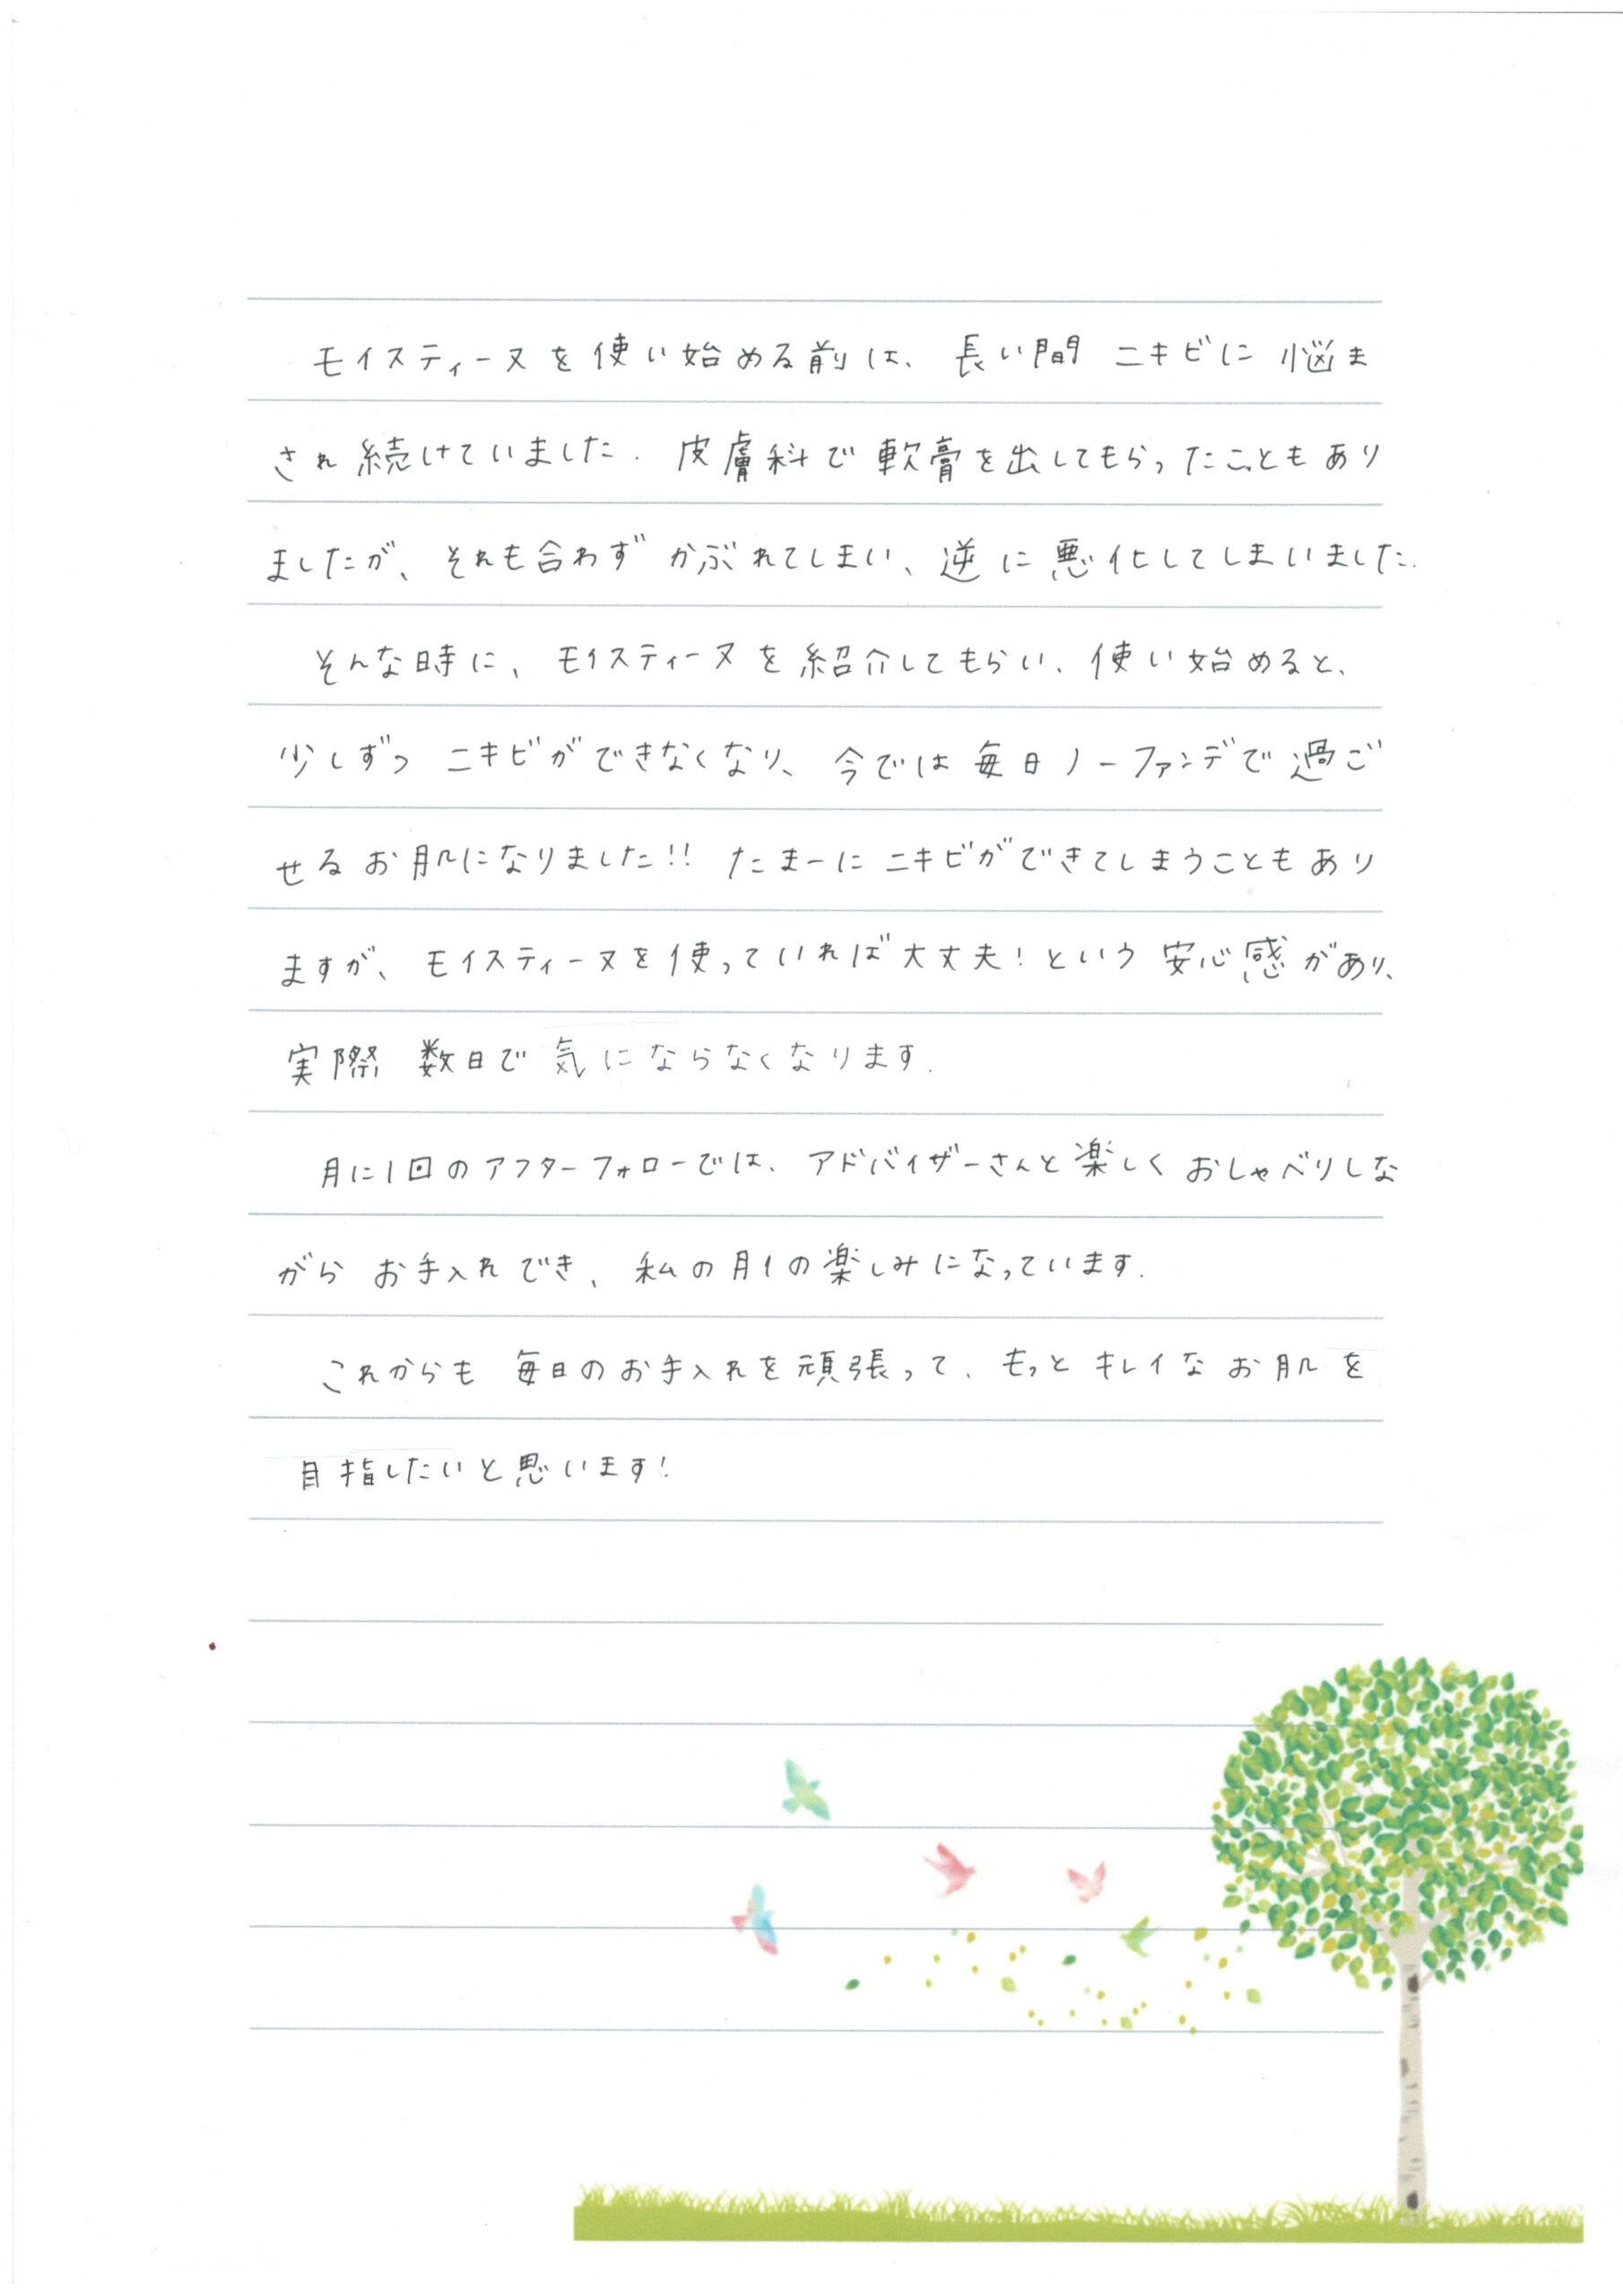 モイスティーヌを使い始める前は、長い間 ニキビに 悩ま
され続けていました. 皮膚科で軟膏を出してもらったこともあり
ましたが、それも合わず かぶれてしまい、逆に悪化してしまいました.
そんな時に、モイスティーヌを紹介してもらい、使い始めると、
少しずつ ニキビができなくなり、今では毎日ノーファンデで過ご
せるお肌になりました!! たまーにニキビができてしまうこともあり
ますが、モイスティーヌを使っていれば大丈夫!という安心感があり、
実際 数日で気にならなくなります.
月に1回のアフターフォローでは、アドバイザーさんと楽しくおしゃべりしな
がら お手入れでき、私の月1の楽しみになっています.
これからも 毎日のお手入れを頑張って、もっとキレイなお肌を
目指したいと思います!